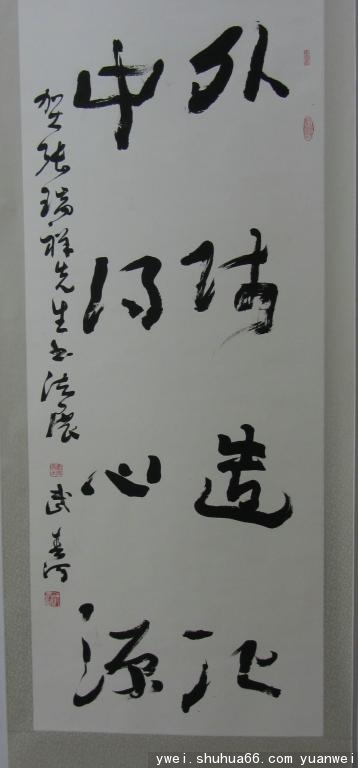 外师造化
中得心源
贺张瑞祥先生书法展 武春河
ywei.shuhua66.com yuanwei